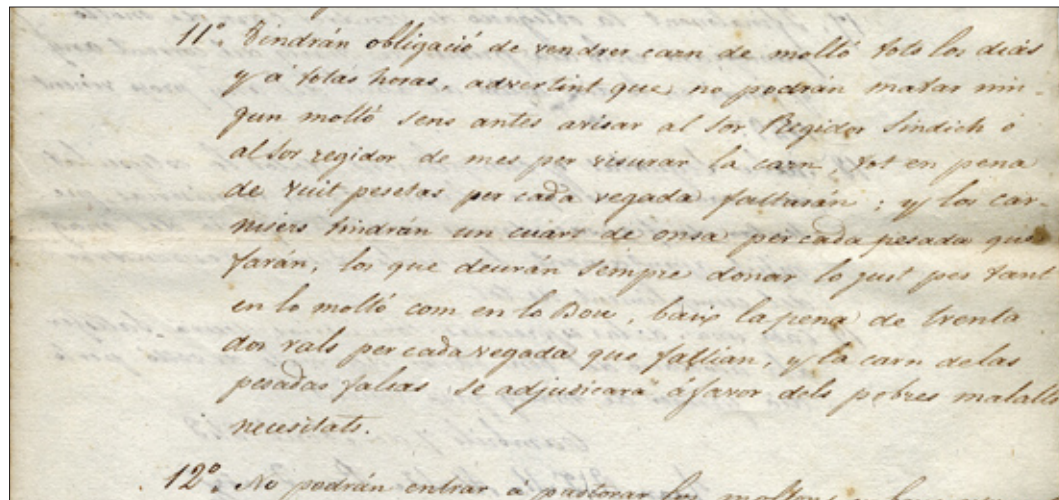 11º. Tindrán obligació de vendrer carn de moltó tots los diás
y á totas horas, advertint que no podrán matar nin-
gun moltó sens antes avisar al Sor. Regidor Sindich ó
al Sor regidor de mes per visurar la carn tot en pena
de vuit pesetas per cada vegada faltarán; y los car-
nisers tindrán un cuart de onsa per cada pesada que
farán, los que deurán sempre donar lo just pes tant
en lo moltó com en lo Bou, baix la pena de trenta
dos rals per cada vegada que faltian, y la carn de las
pesadas falsas se adjudicará á favor dels pobres malalts
necesitats.
12º. No podrán entrar á pasturar los moltons